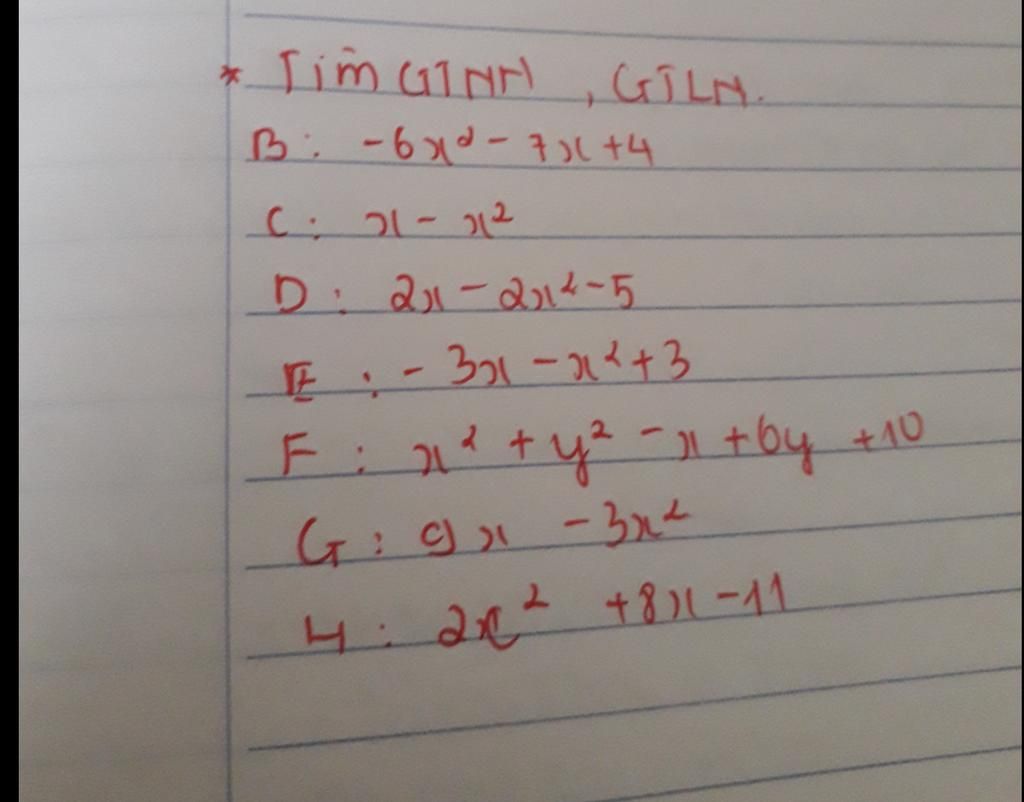 * Tìm GTNN, GTLN.
B: -6x² - 7x + 4
C: x - x²
D: 2x - 2x² - 5
E: - 3x - x² + 3
F: x² + y² - x + 6y + 10
G: 9x - 3x²
H: 2x² + 8x - 11